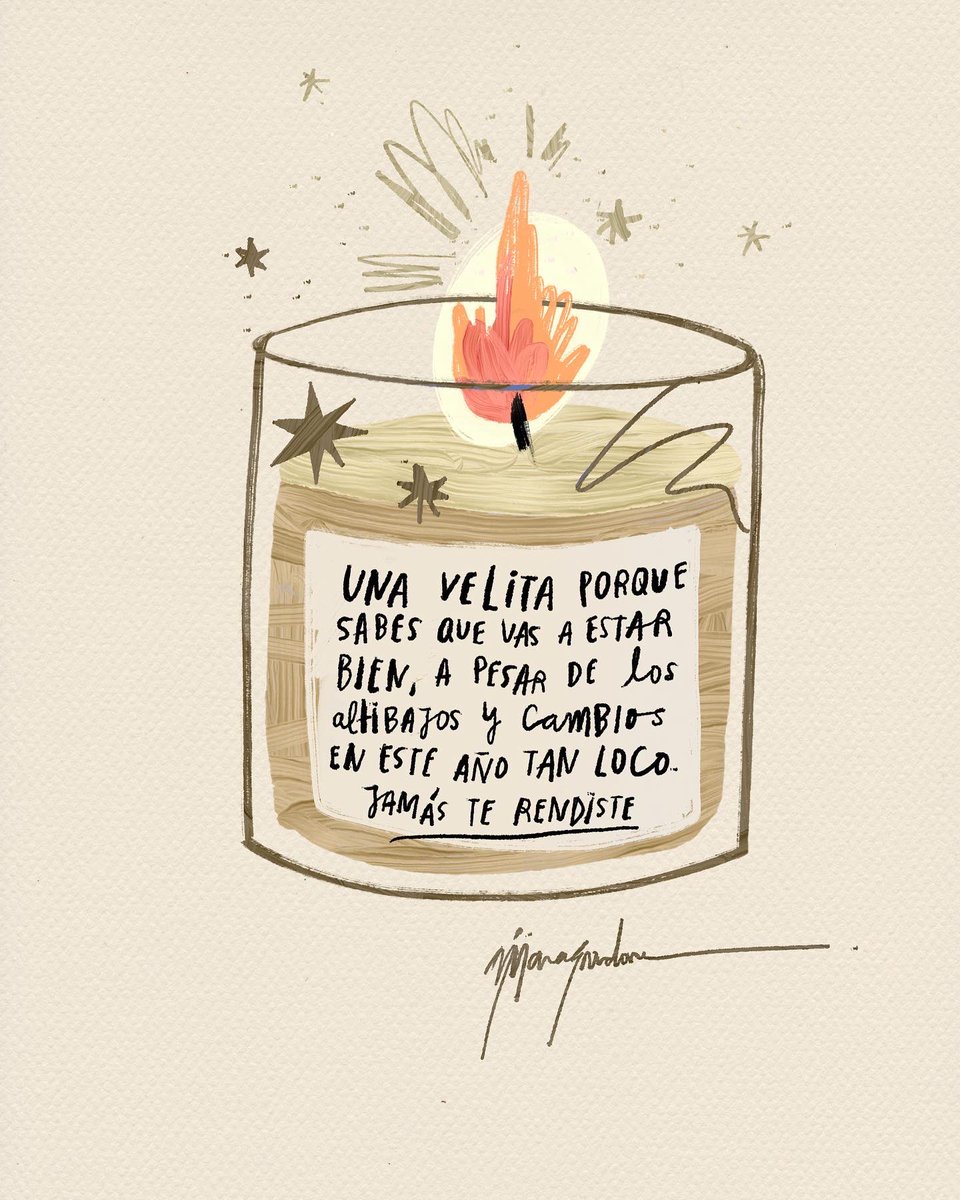 UNA VELITA PORQUE
SABES QUE VAS A ESTAR
BIEN, A PESAR DE los
altiBAJOS Y CAMBIOS
EN ESTE AÑO TAN LOCO.
JAMÁS TE RENDISTE